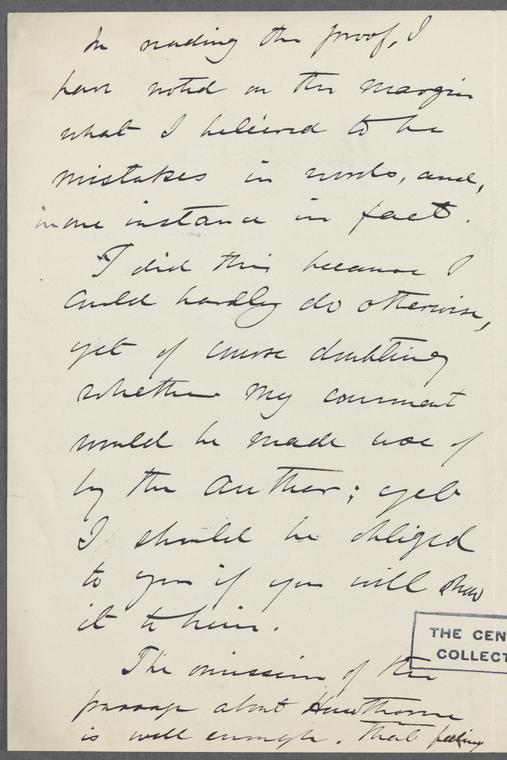 In reading the proof, I
have noted on the margin
what I believed to be
mistakes in words, and,
in one instance in fact.
I did this because I
could hardly do otherwise,
yet of course doubting
whether my comment
would be made use of
by the author; yet
I should be obliged
to you if you will show
it to him.
THE CEN
COLLECT
The omission of the
passage about Hawthorne
is well enough. That feeling